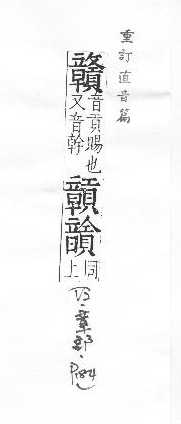 重訂直音篇
贛
音貢賜也
又音幹
同
上
(V3.章部.
P184)